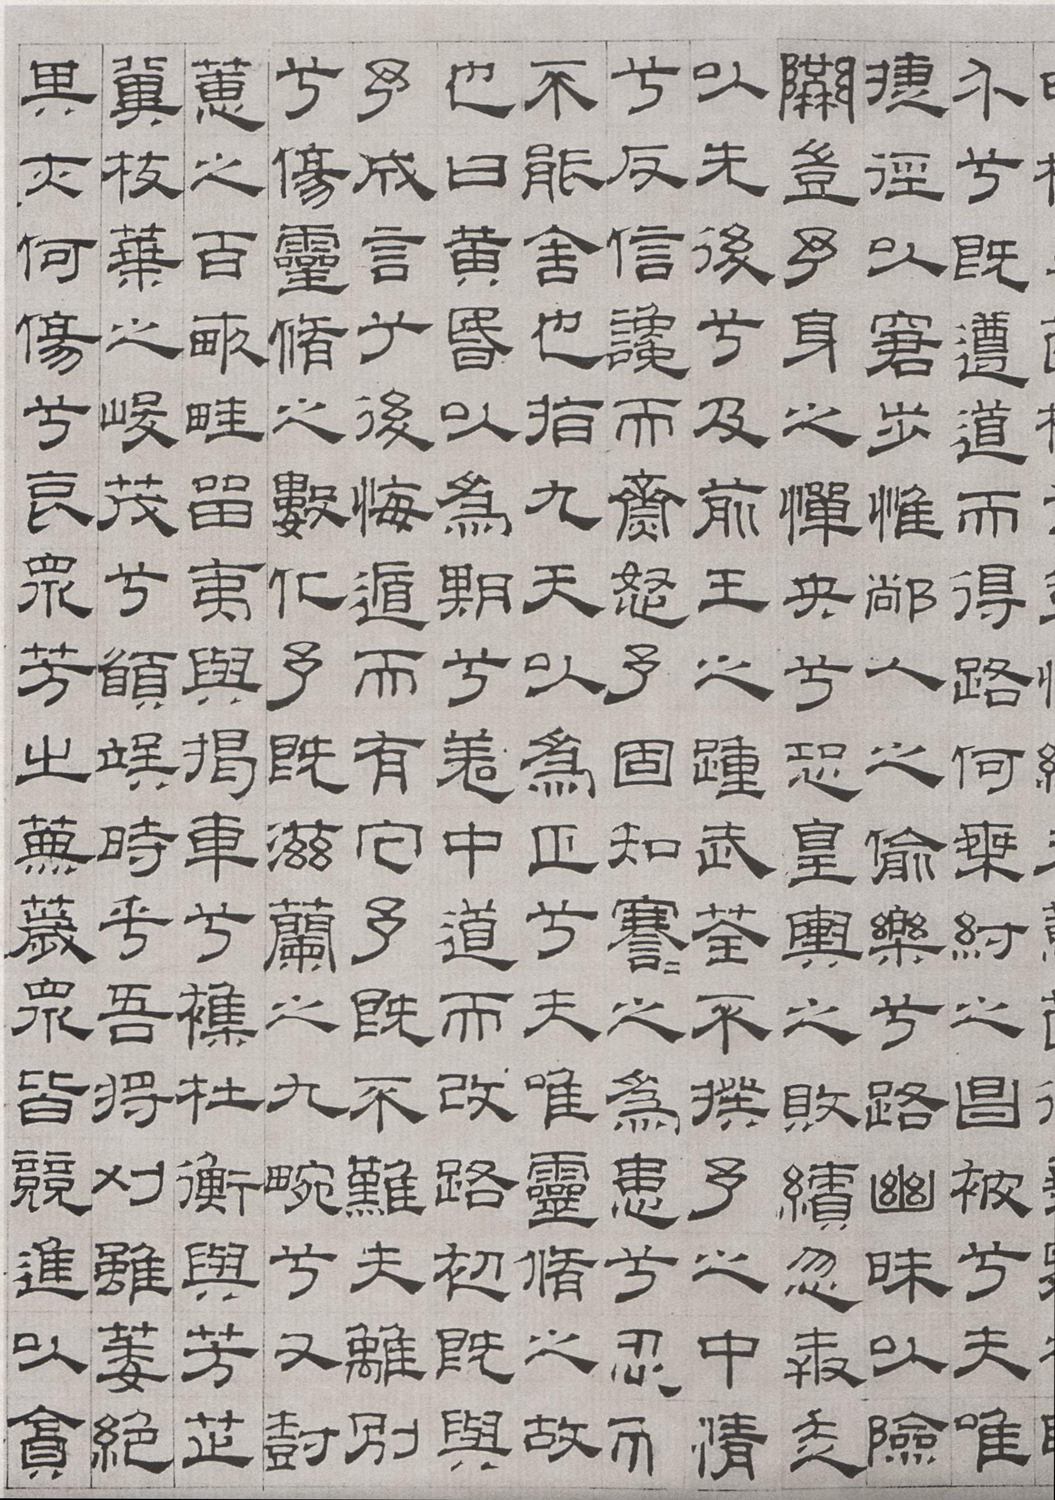 介兮既遵道而得路何桀紂之昌被兮夫唯
捷徑以窘步惟䣊人之偷樂兮路幽昧以險
隘豈予身之憚央兮恐皇輿之敗績忽奔走
以先後兮及前王之踵武荃不揆予之中情
兮反信讒而齌怒予固知謇〻之為患兮忍而
不能舍也指九天以為正兮夫唯靈脩之故
也曰黃昏以為期兮羌中道而改路初既與
予成言兮後悔遁而有它予既不難夫離別
兮傷靈脩之數化予既滋蘭之九畹兮又樹
蕙之百畝畦留夷與揭車兮雜杜衡與芳芷
冀枝葉之峻茂兮願竢時乎吾將刈雖萎絕
其亦何傷兮哀眾芳之蕪薉眾皆競進以貪